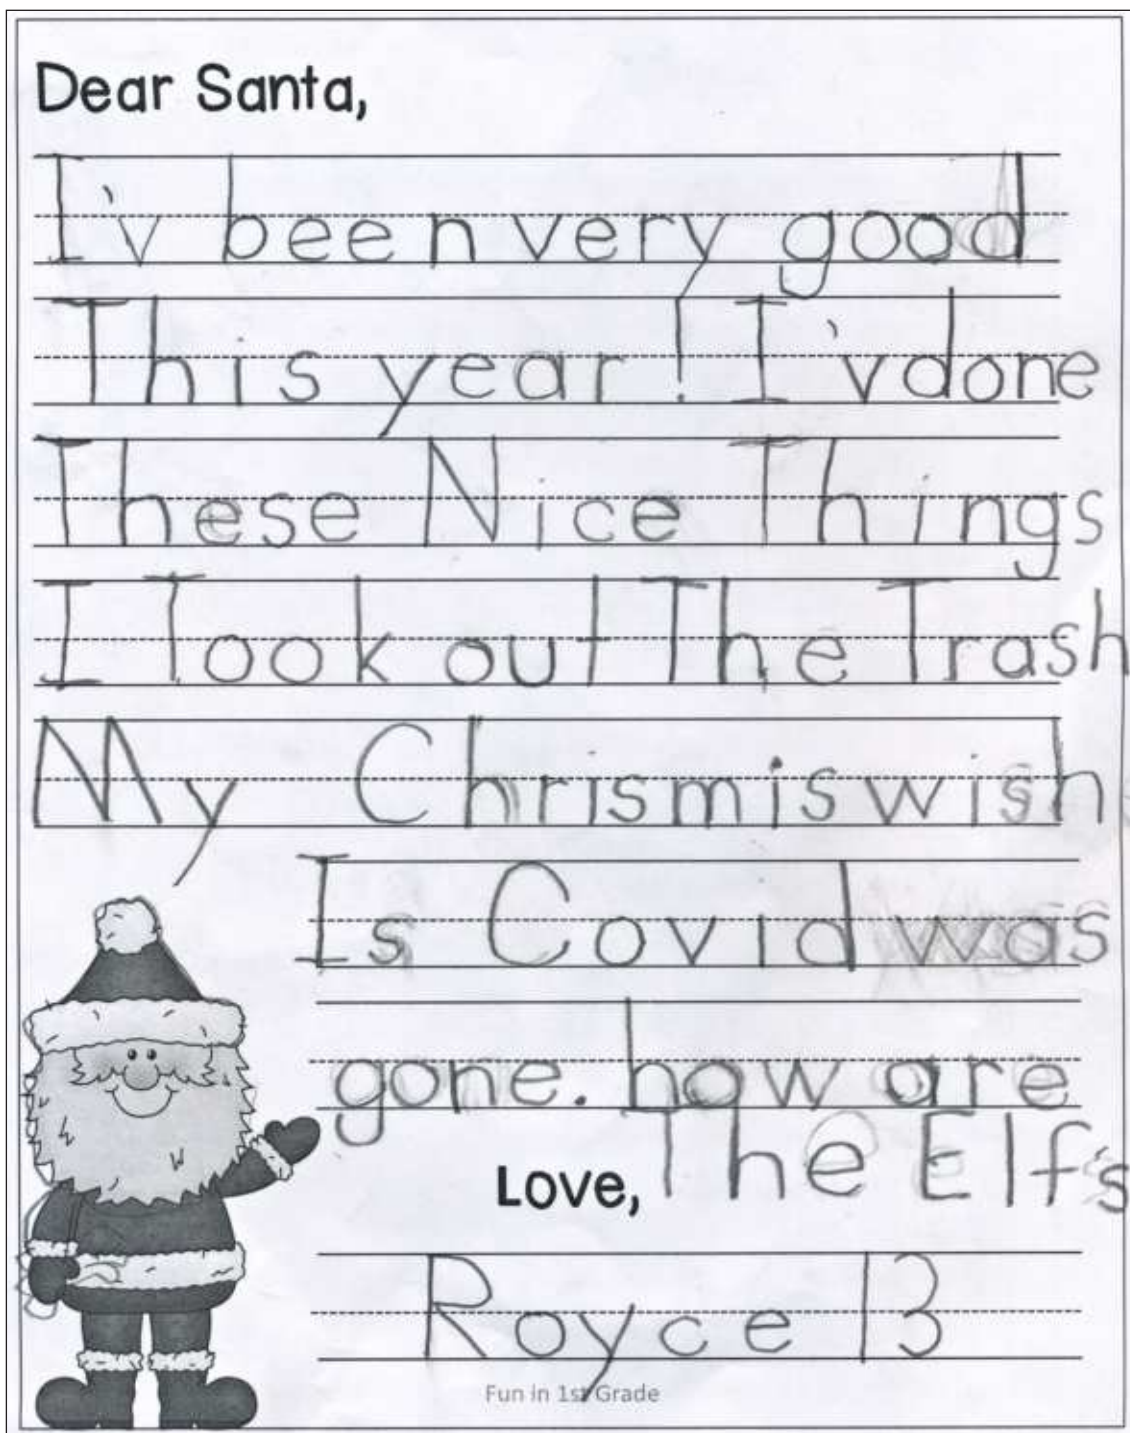 Dear Santa,
I'v been very good
This year! I'v done
These Nice Things
I Took out The Trash
My Chrismis wish
Is Covid was
gone. how are
The Elf's
Love,
Royce B
Fun in 1st Grade